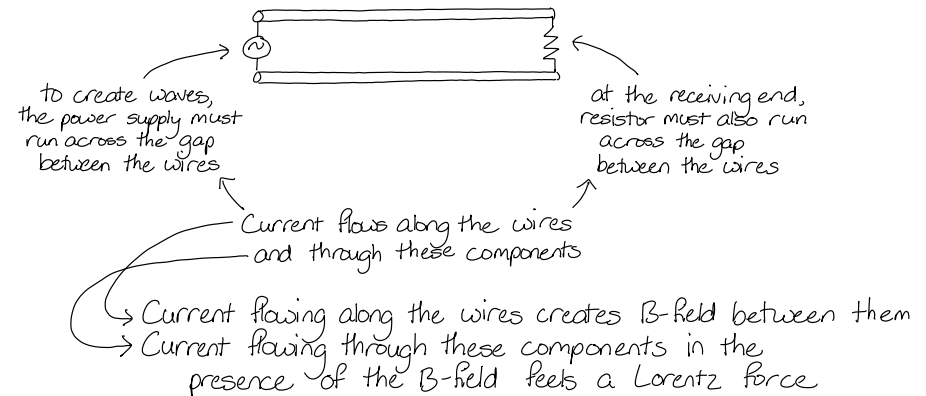 to create waves,
the power supply must
run across the gap
between the wires
at the receiving end,
resistor must also run
across the gap
between the wires
Current flows along the wires
and through these components
Current flowing along the wires creates B-field between them
Current flowing through these components in the
presence of the B-field feels a Lorentz force